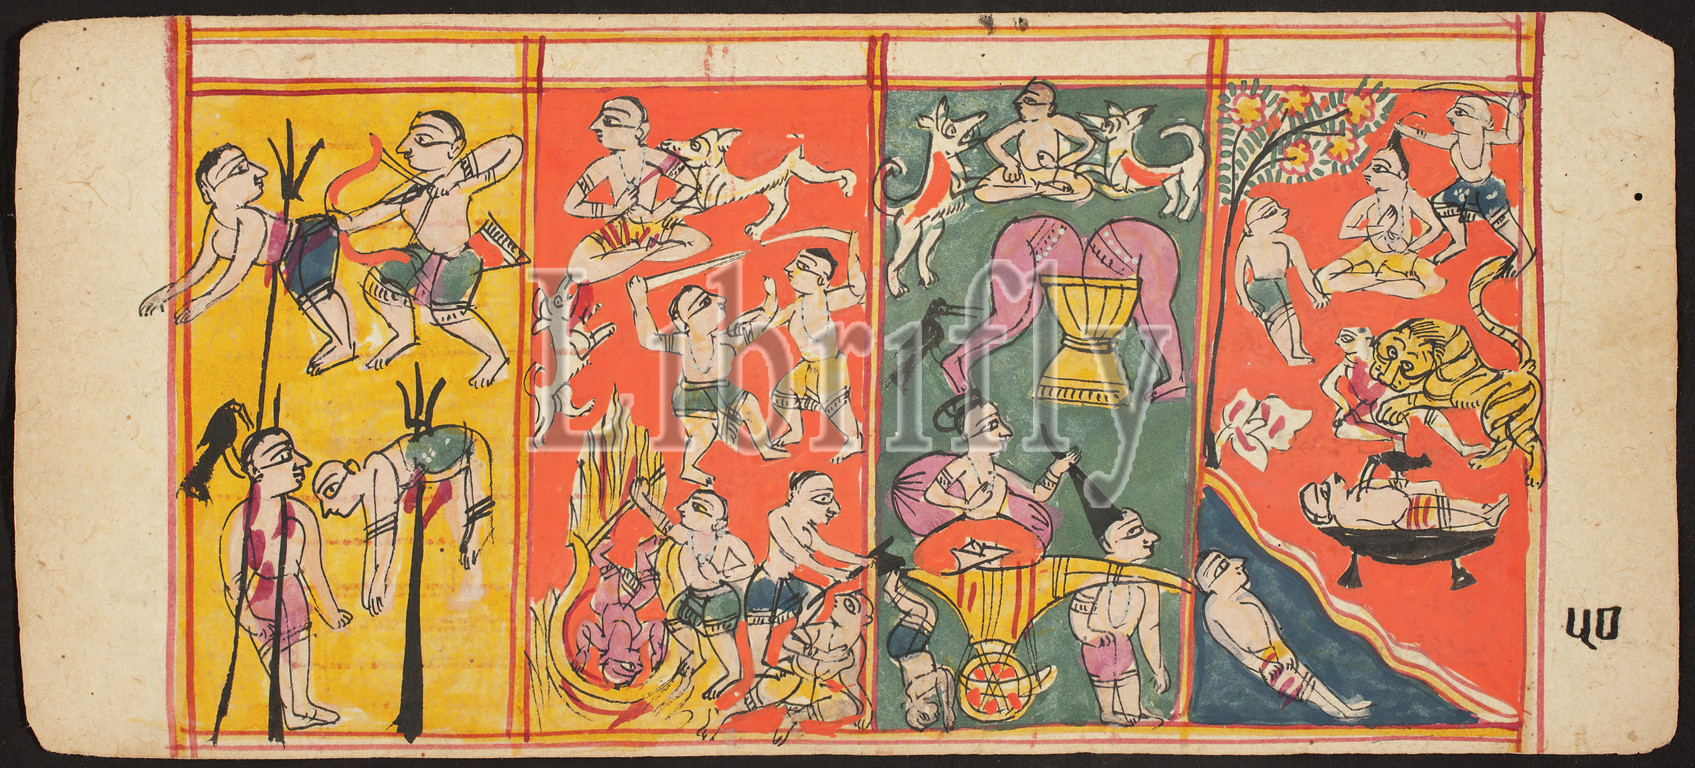 Librifly
५०